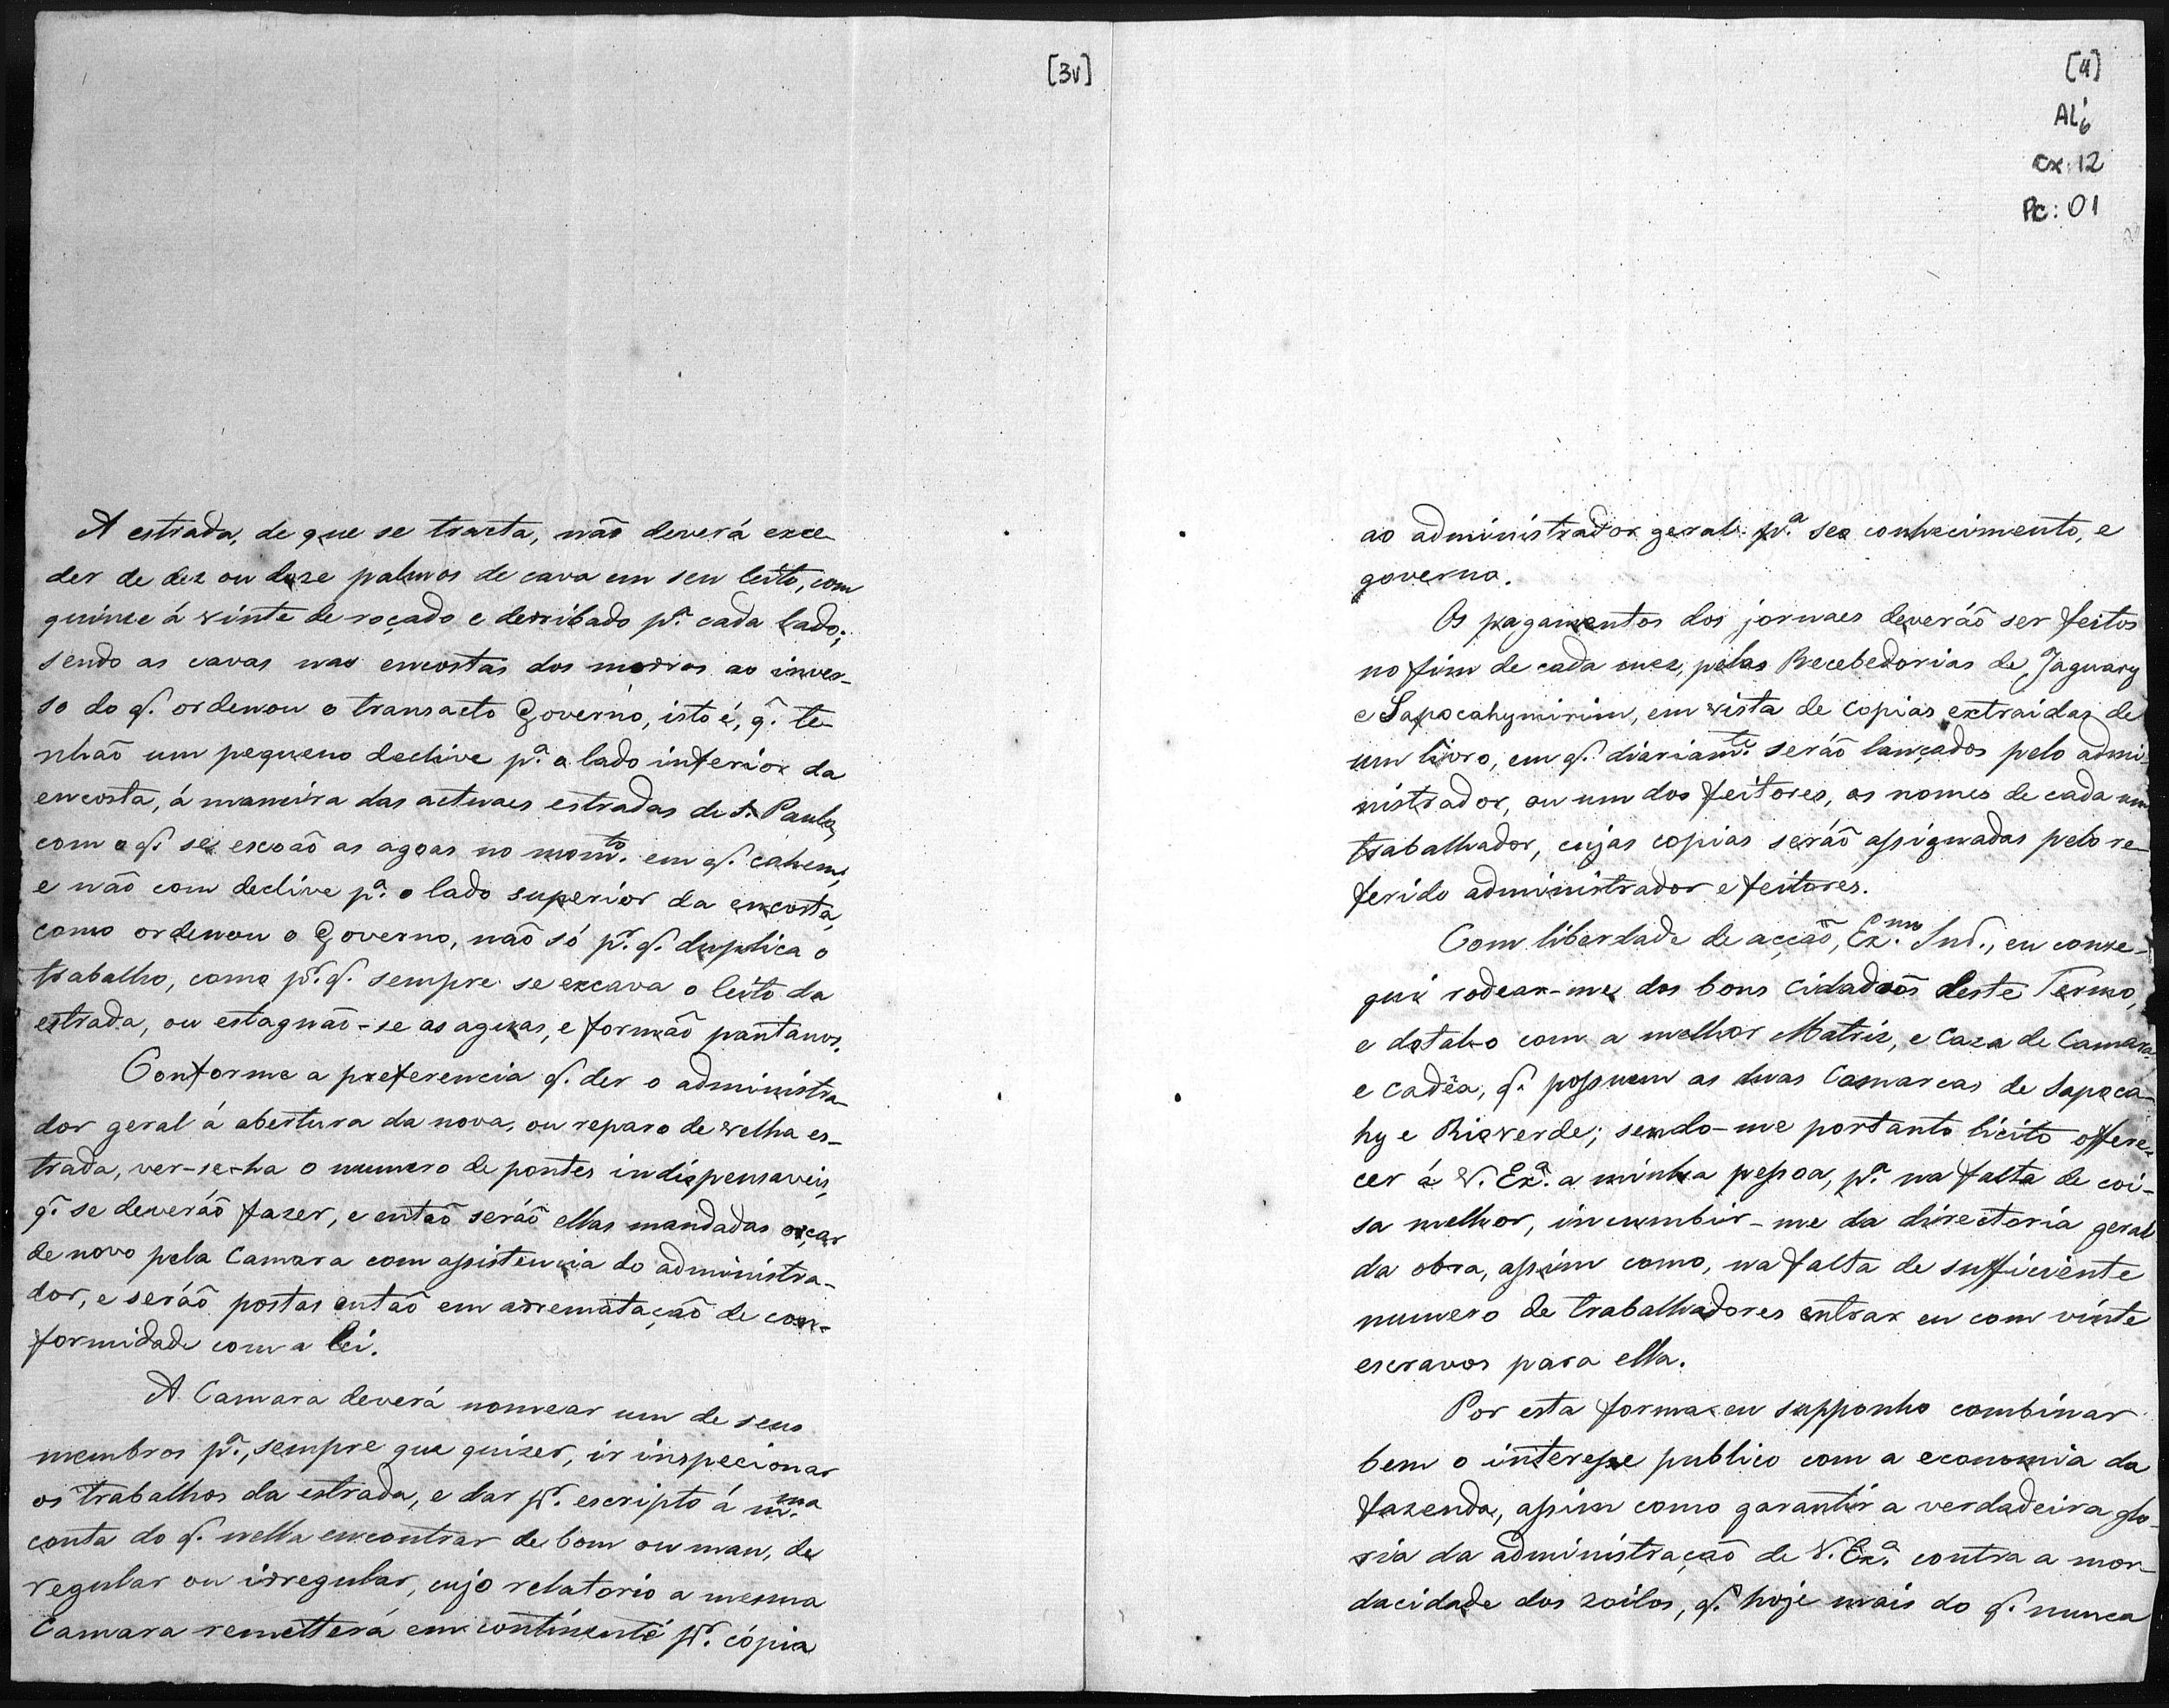 [3v]
A estrada, de que se tracta, não deverá exce-
der de dez ou doze palmos de cava em seu leito, com
quinze á vinte de roçado e derribado p.ª cada lado;
sendo as cavas nas encostas dos morros ao inver-
so do q. ordenou o transacto Governo, isto é, q. te-
nhão um pequeno declive p.ª o lado inferior da
encosta, á maneira das actuaes estradas de S. Paulo,
com o q. se escoão as agoas no mom.to em q. cahem,
e não com declive p.ª o lado superior da encosta,
como ordenou o Governo, não só p.r q. duplica o
trabalho, como p.r q. sempre se excava o leito da
estrada, ou estagnão-se as aguas, e formão pantanos.
Conforme a preferencia q. der o administra-
dor geral á abertura da nova, ou reparo de velha es-
trada, ver-se-ha o numero de pontes indispensaveis,
q. se deveráõ fazer, e então seráõ ellas mandadas orçar
de novo pela Camara com assistencia do administra-
dor, e seráõ postas então em arrematação de con-
formidade com a lei.
A Camara deverá nomear um de seus
membros p.ª, sempre que quizer, ir inspecionar
os trabalhos da estrada, e dar p.r escripto á m.ma
conta do q. nella encontrar de bom ou mau, de
regular ou irregular, cujo relatorio a mesma
Camara remetterá em continenté p.r cópia
[4]
AL.6
cx: 12
Pc: 01
ao administrador geral p.ª seo conhecimento, e
governo.
Os pagamentos dos jornaes deveráõ ser feitos
no fim de cada mez, pelas Recebedorias de Jaguary
e Sapocahymirim, em vista de copias extraidas de
um livro, em q. diariam.te seráõ lançados pelo admi-
nistrador, ou um dos feitores, os nomes de cada um
trabalhador, cujas copias seráõ assignadas pelo re-
ferido administrador e feitores.
Com liberdade de acção, Ex.mo Snr., eu conse-
gui rodear-me dos bons Cidadãos deste Termo,
e dotal-o com a melhor Matriz, e Caza de Camara
e Cadêa, q. possuem as duas Comarcas de Sapoca-
hy e Rioverde; sendo-me portanto licito offere-
cer á V. Ex.ª a minha pessoa, p.ª na falta de coi-
sa melhor, incumbir-me da directoria geral
da obra, assim como, na falta de sufficiente
numero de trabalhadores entrar eu com vinte
escravos para ella.
Por esta forma eu supponho combinar
bem o interesse publico com a economia da
fazenda, assim como garantir a verdadeira glo-
ria da administração de V. Ex.ª contra a mor-
dacidade dos zoilos, q. hoje mais do q. nunca